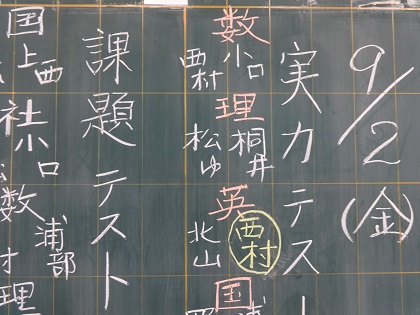 9/2(金)
実力テスト
数 小口 西村
理 桐井 松ゆ
英 西村 北山
国
課題テスト
国 上西
社 小口
数 浦部
理